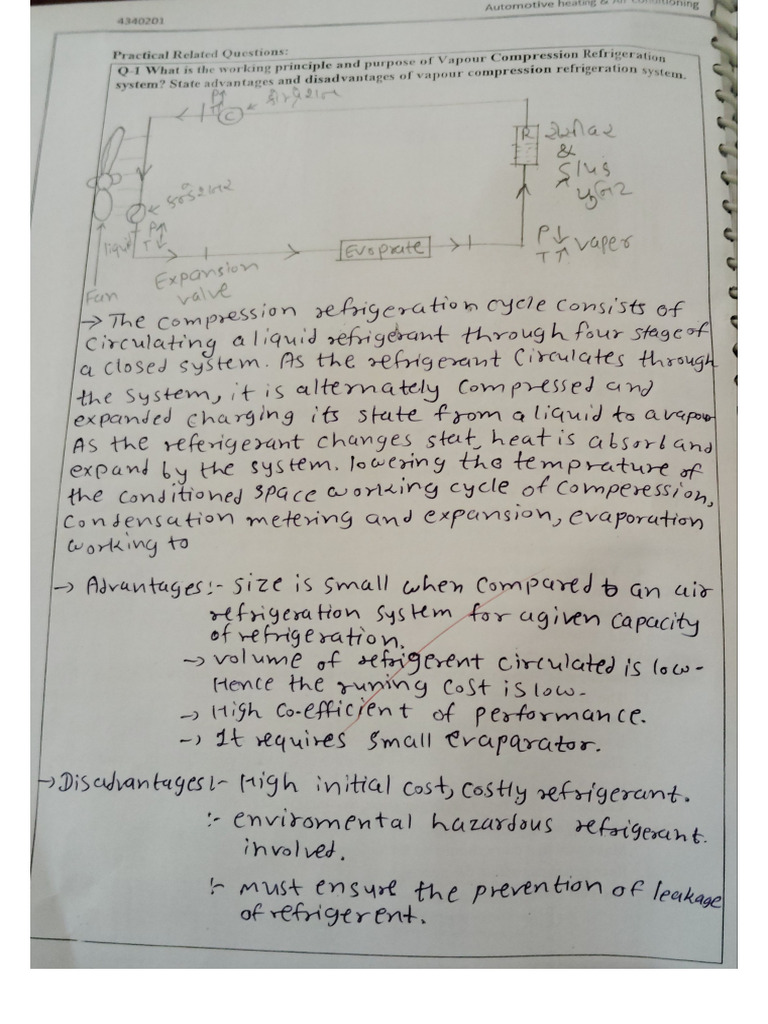 Automotive heating & Air Conditioning
4340201
Practical Related Questions:
Q-1 What is the working principle and purpose of Vapour Compression Refrigeration
system? State advantages and disadvantages of vapour compression refrigeration system.
P↑
T↑
C
R
&
P↑
T↓
liquid
Fan
Expansion
valve
Evoprate
P↓
T↑
vaper
→ The compression refrigeration cycle consists of
circulating a liquid refrigerant through four stage of
a closed system. As the refrigerant circulates through
the system, it is alternately compressed and
expanded charging its state from a liquid to a vapour
As the referigerant changes stat, heat is absorb and
expand by the system. lowering the temprature of
the conditioned space working cycle of comperession,
condensation metering and expansion, evaporation
working to
→ Advantages:- size is small when compared to an air
refrigeration system for a given capacity
of refrigeration.
→ volume of refrigerent circulated is low-
Hence the runing cost is low-
→ High co-efficient of performance.
→ It requires small evaparator.
→ Disadvantages:- High initial cost, costly refrigerant.
:- enviromental hazardous refrigerant.
involved.
:- must ensure the prevention of leakage
of refrigerent.